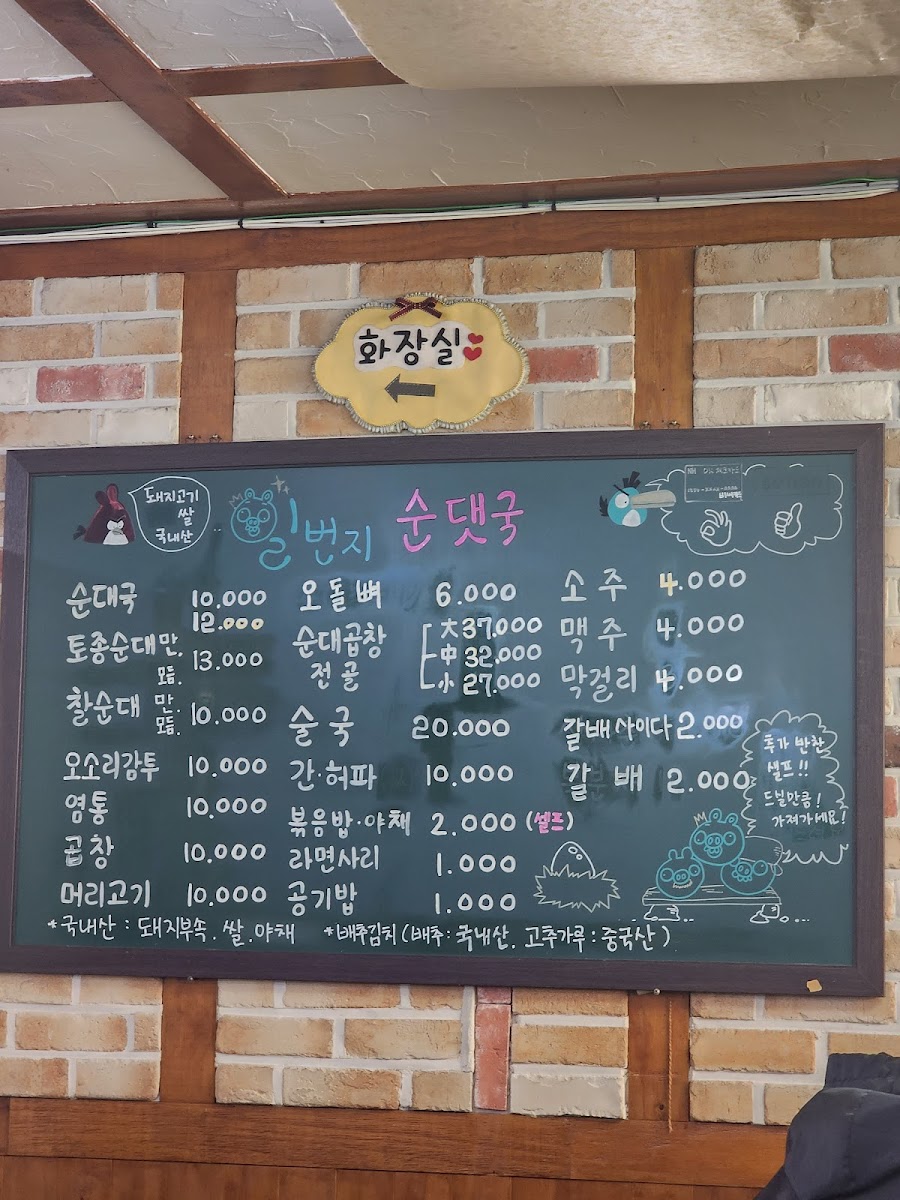 화장실
돼지고기
쌀
국내산
일번지 순댓국
순대국 10.000
12.000
토종순대 만. 모듬. 13.000
찰순대 만. 모듬. 10.000
오소리감투 10.000
염통 10.000
곱창 10.000
머리고기 10.000
오돌뼈 6.000
순대곱창 전골
大 37.000
中 32.000
小 27.000
술국 20.000
간·허파 10.000
볶음밥·야채 2.000 (셀프)
라면사리 1.000
공기밥 1.000
소주 4.000
맥주 4.000
막걸리 4.000
갈배 사이다 2.000
갈배 2.000
추가 반찬
셀프!!
드실만큼!
가져가세요!
*국내산 : 돼지부속. 쌀. 야채 *배추김치 (배추 : 국내산. 고추가루 : 중국산)